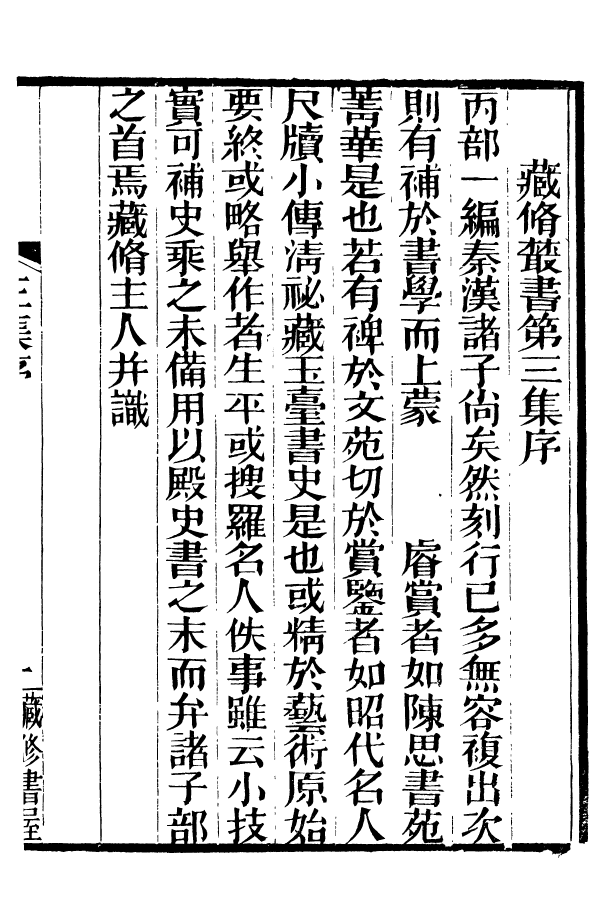 藏脩叢書第三集序
丙部一編秦漢諸子尚矣然刻行已多無容複出次
則有補於書學而上蒙　　睿賞者如陳思書苑
菁華是也若有裨於文苑切於賞鑒者如昭代名人
尺牘小傳淸祕藏玉臺書史是也或精於藝術原始
要終或略舉作者生平或搜羅名人佚事雖云小技
實可補史乘之未備用以殿史書之末而弁諸子部
之首焉藏脩主人并識
三集序
一
藏修書屋